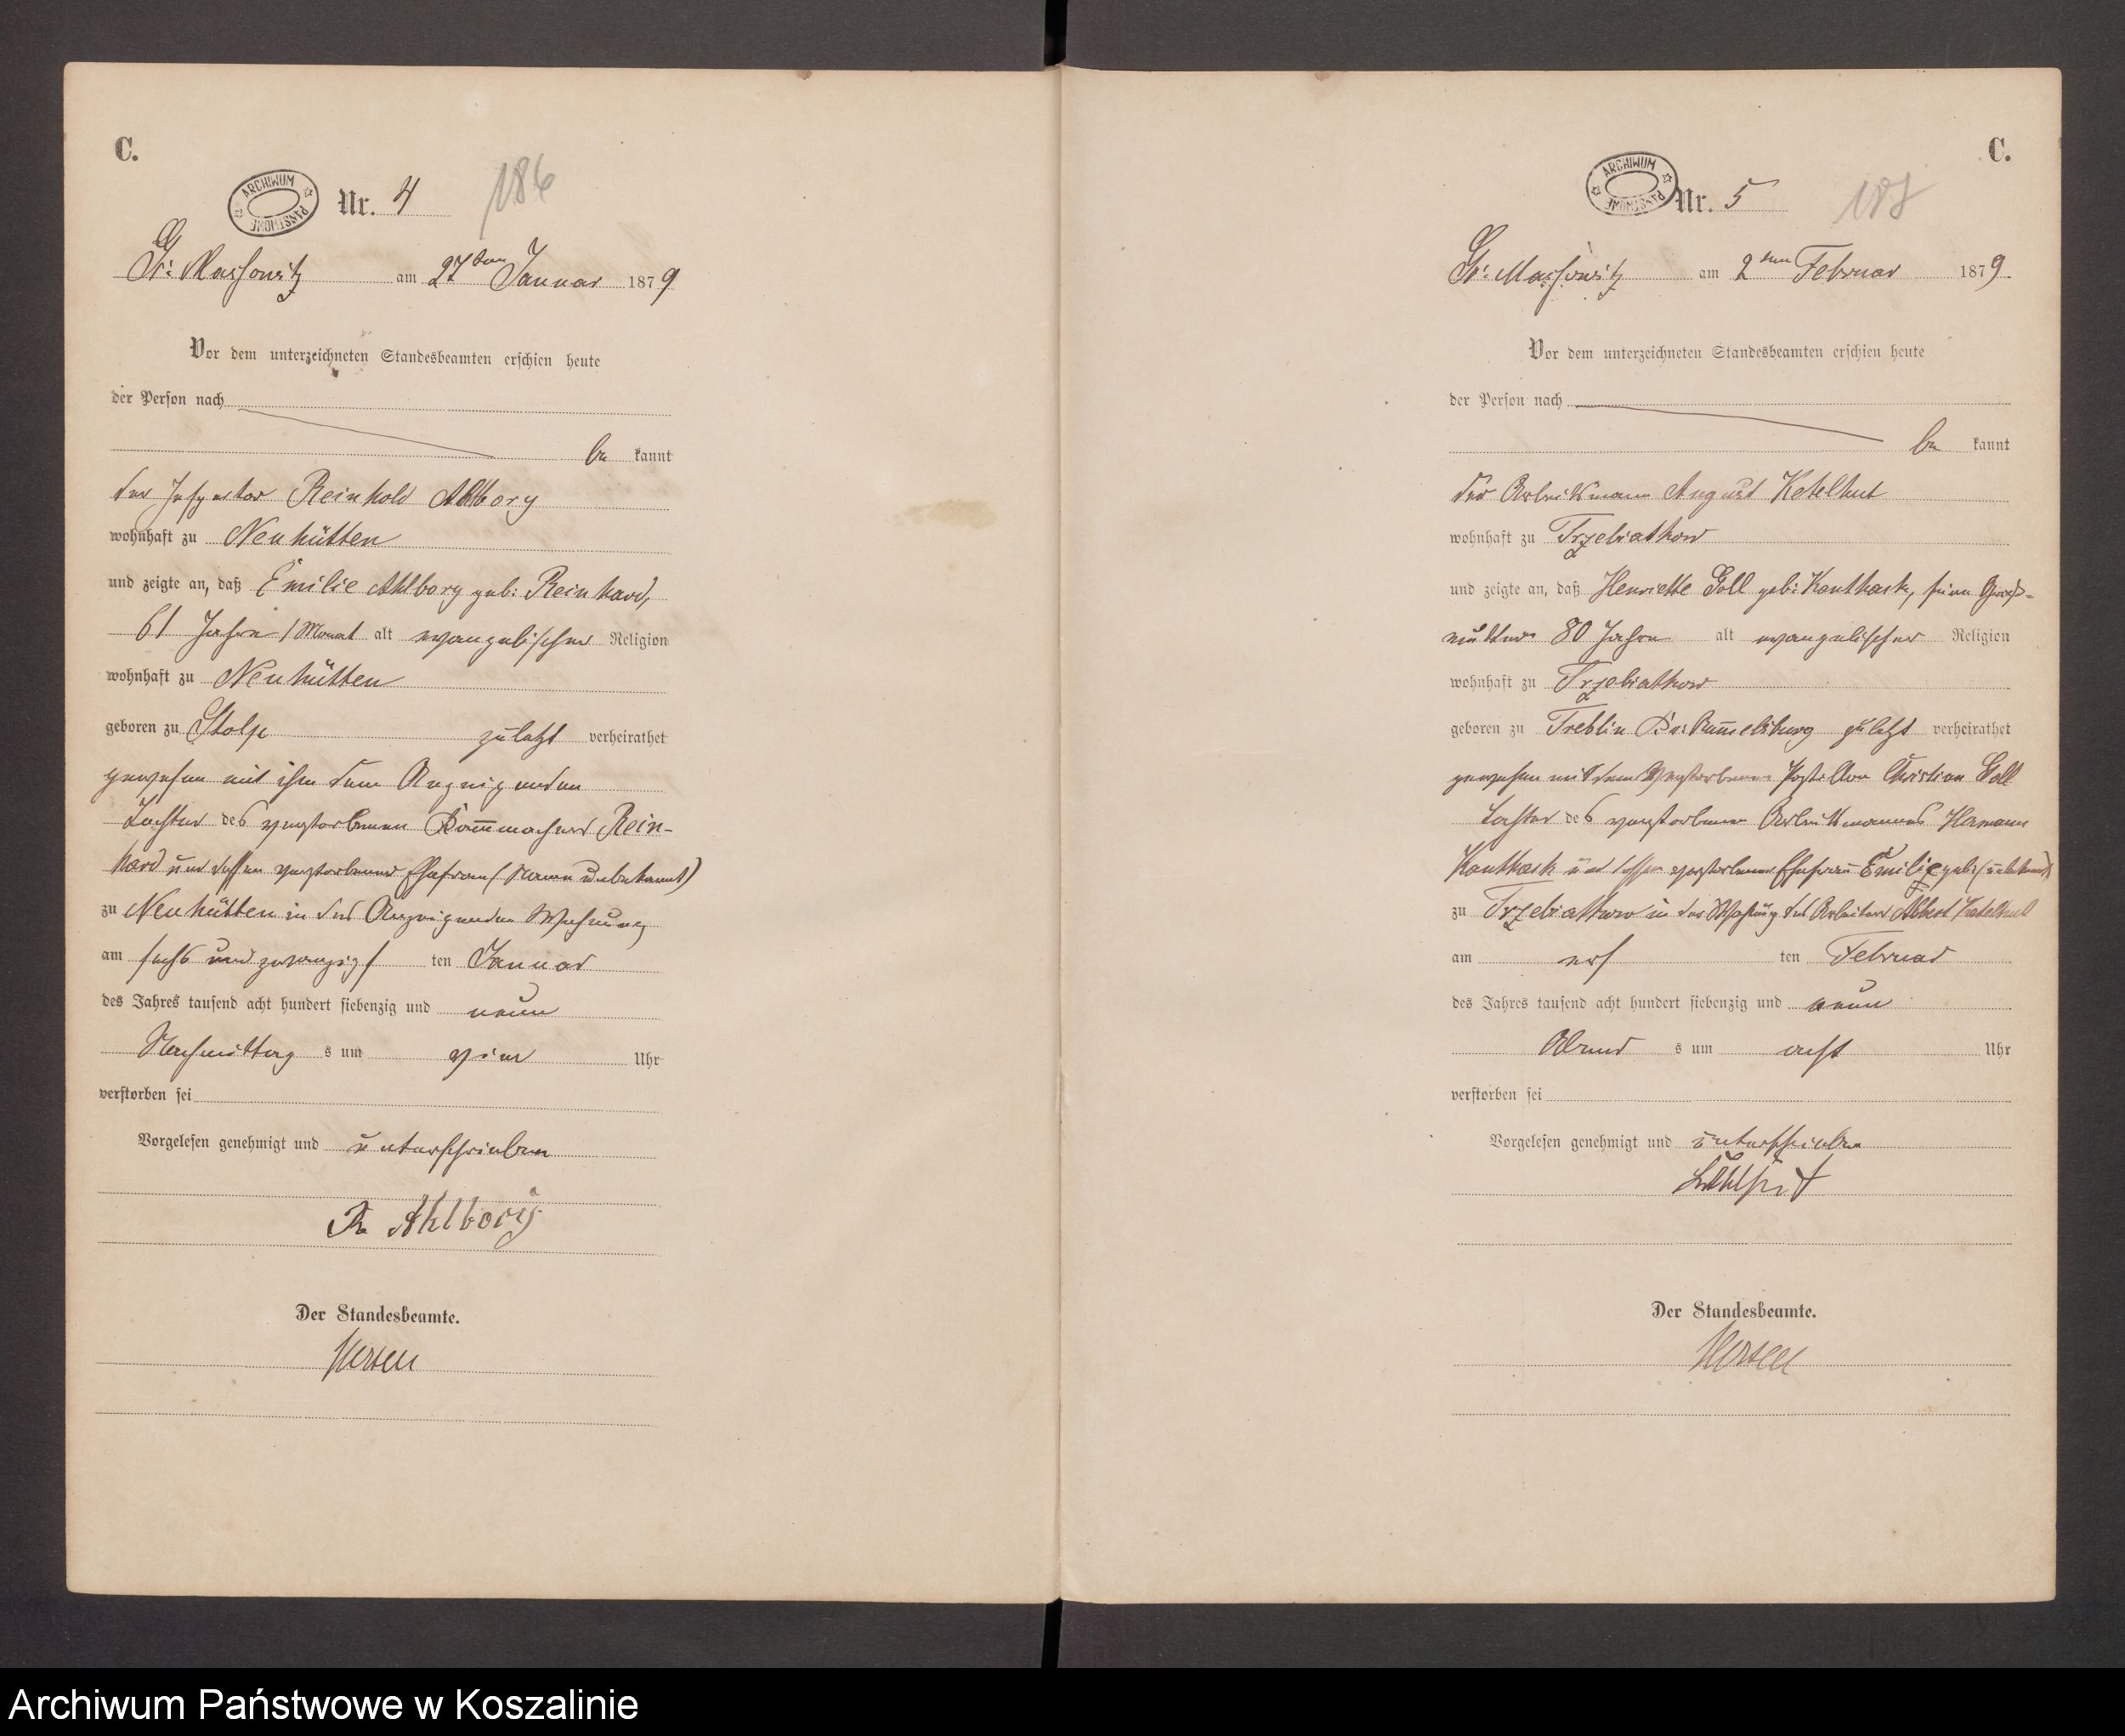 C.
ARCHIWUM PAŃSTWOWE
Nr. 4
186
Gr: Massowitz am 27ten Januar 1879
Vor dem unterzeichneten Standesbeamten erschien heute
der Person nach
be kannt
der Inspector Reinhold Ahlborg
wohnhaft zu Neuhütten
und zeigte an, daß Emilie Ahlborg geb: Reinhard,
61 Jahre 1 Monat alt evangelischer Religion
wohnhaft zu Neuhütten
geboren zu Stolp zuletzt verheirathet
gewesen mit ihm dem Anzeigenden
Tochter des verstorbenen Kammachers Rein-
hard und dessen verstorbener Ehefrau (Name unbekannt)
zu Neuhütten in des Anzeigenden Wohnung
am sechs und zwanzigs ten Januar
des Jahres tausend acht hundert siebenzig und neun
Nachmittag s um vier Uhr
verstorben sei
Vorgelesen genehmigt und unterschrieben
R Ahlborg
Der Standesbeamte.
C.
ARCHIWUM PAŃSTWOWE
Nr. 5
187
Gr: Massowitz am 2ten Februar 1879.
Vor dem unterzeichneten Standesbeamten erschien heute
der Person nach
be kannt
der Arbeitsmann August Ketelhut
wohnhaft zu Trzebiatkow
und zeigte an, daß Henriette Goll geb: Kanthack, seine Groß-
mutter 80 Jahre alt evangelischer Religion
wohnhaft zu Trzebiatkow
geboren zu Treblin Kr: Rummelsburg zuletzt verheirathet
gewesen mit dem verstorbenen Postillon Christian Goll
Tochter des verstorbenen Arbeitsmannes Hermann
Kanthack und dessen verstorbenen Ehefrau Emilie geb: (unbekannt)
zu Trzebiatkow in der Wohnung des Arbeiters Albert Ketelhut
am ers ten Februar
des Jahres tausend acht hundert siebenzig und neun
Abend s um acht Uhr
verstorben sei
Vorgelesen genehmigt und unterschrieben
Der Standesbeamte.
Archiwum Państwowe w Koszalinie